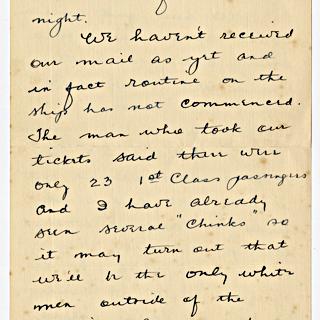 night.
We haven't received
our mail as yet and
in fact routine on the
ship has not commenced.
The man who took our
tickets said there were
only 23 1st Class passengers
and I have already
seen several "Chinks" so
it may turn out that
we'll be the only white
men outside of the